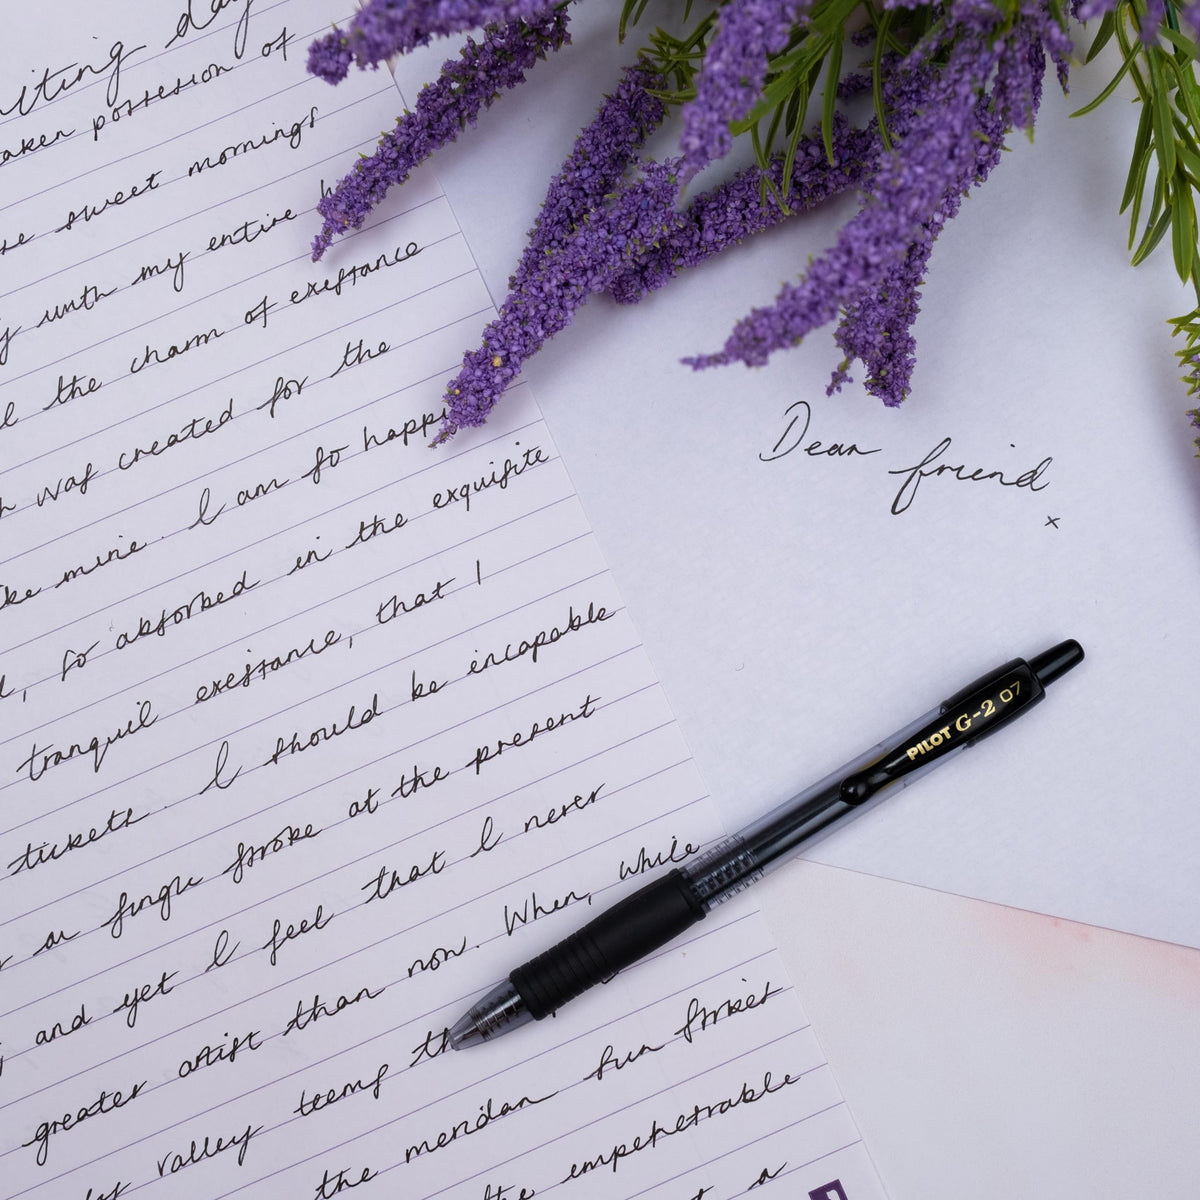 taken possession of
sweet mornings
with my entire
the charm of existance
was created for the
mine. I am so happy
so absorbed in the exquisite
tranquil existance, that I
tickets. I should be incapable
a single stroke at the present
and yet I feel that I never
greater artist than now. When, while
valley teems
the meridan sun strikes
the impenetrable
a
Dear friend
x
PILOT G-2 07